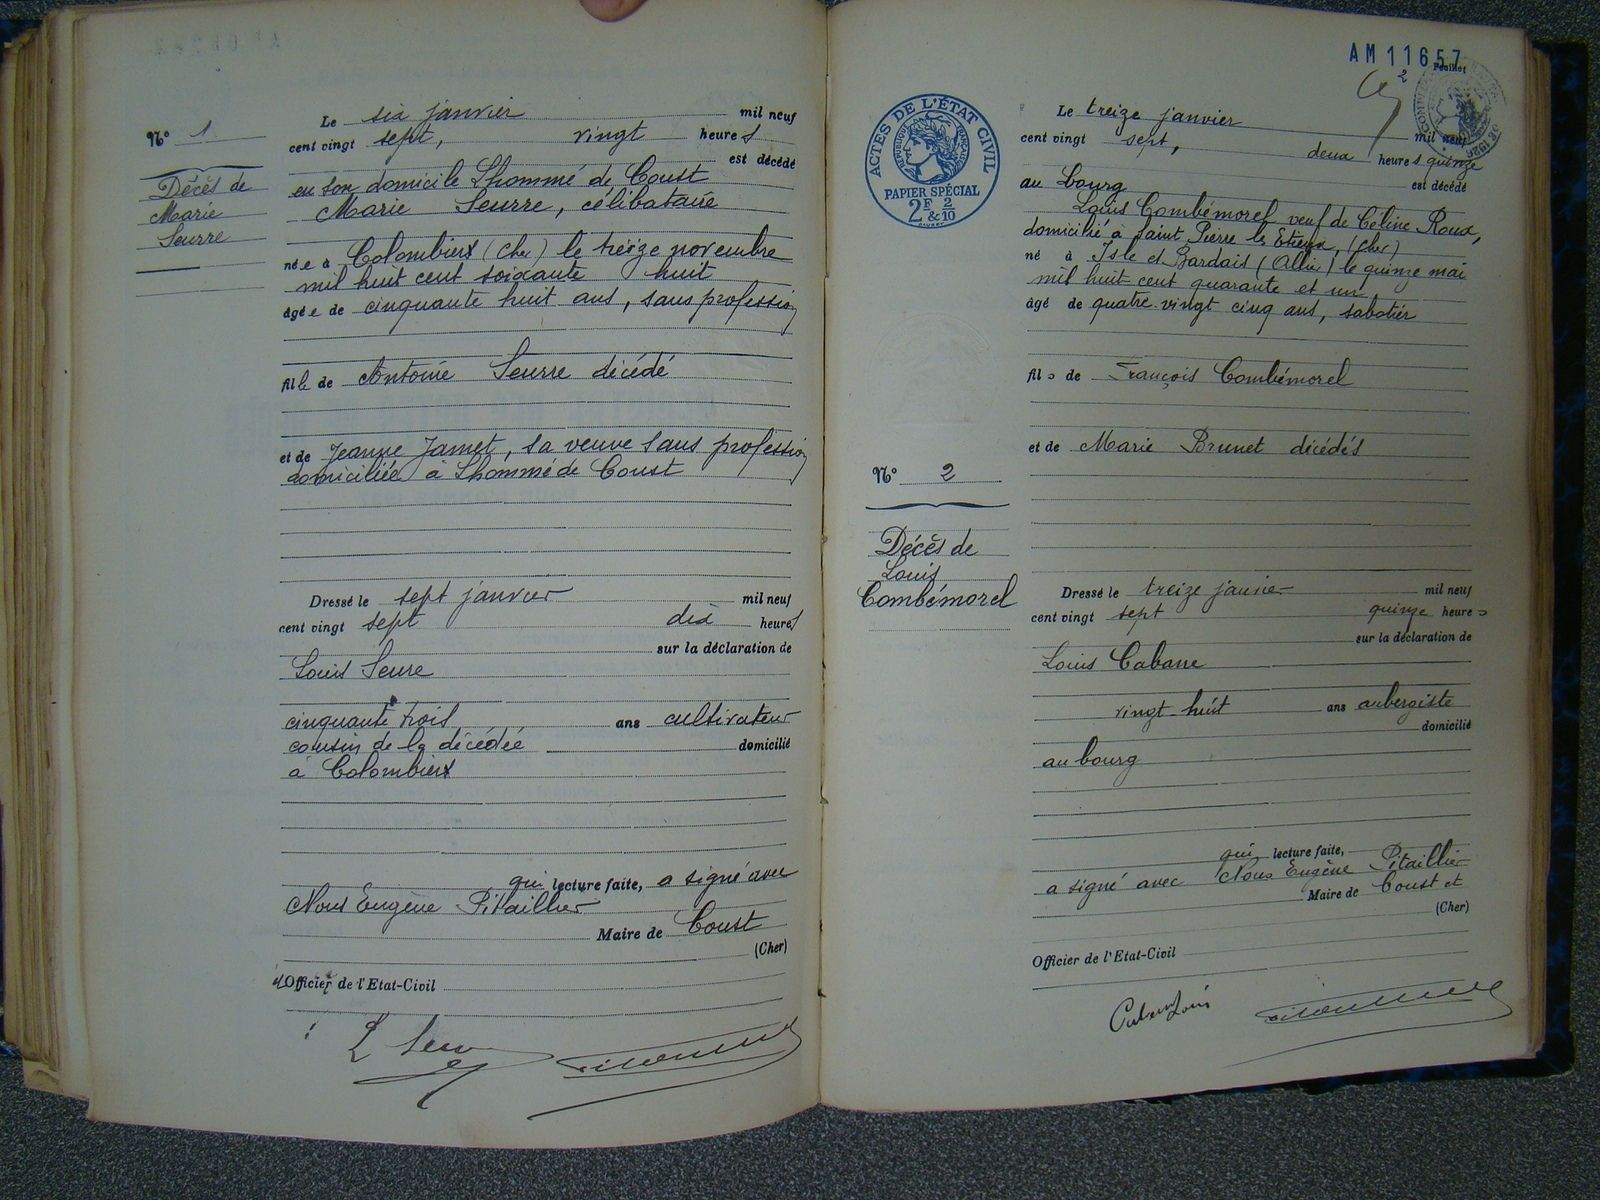 N° 1
Décès de
Marie
Seurre
Le six janvier mil neuf
cent vingt sept, vingt heures
est décédé
en son domicile Lhommé de Coust
Marie Seurre, célibataire
née à Colombiers (Cher) le treize novembre
mil huit cent soixante huit
âgée de cinquante huit ans, sans profession
fille de Antoine Seurre décédé
et de Jeanne Jamet, sa veuve sans profession
domiciliée à Lhommé de Coust
Dressé le sept janvier mil neuf
cent vingt sept dix heures
sur la déclaration de
Louis Seure
cinquante trois ans cultivateur
cousin de la décédée domicilié
à Colombiers
qui lecture faite, a signé avec
Nous Eugène Pitaillier
Maire de Coust
(Cher)
Officier de l'Etat-Civil
AM 11657
Feuillet
2
ACTES DE L'ÉTAT CIVIL
RÉPUBLIQUE FRANÇAISE
PAPIER SPÉCIAL
2F & 2/10
Le treize janvier mil neuf
cent vingt sept, deux heures quinze
est décédé
au bourg
Louis Combémorel veuf de Céline Roux,
domicilié à Saint Pierre les Etieux, (Cher)
né à Isle et Bardais (Allier) le quinze mai
mil huit cent quarante et un
âgé de quatre-vingt cinq ans, sabotier
fils de François Combémorel
et de Marie Brunet décédés
N° 2
Décès de
Louis
Combémorel
Dressé le treize janvier mil neuf
cent vingt sept quinze heures
sur la déclaration de
Louis Cabane
vingt-huit ans aubergiste
domicilié
au bourg
qui lecture faite,
a signé avec Nous Eugène Pitaillier
Maire de Coust et
(Cher)
Officier de l'Etat-Civil